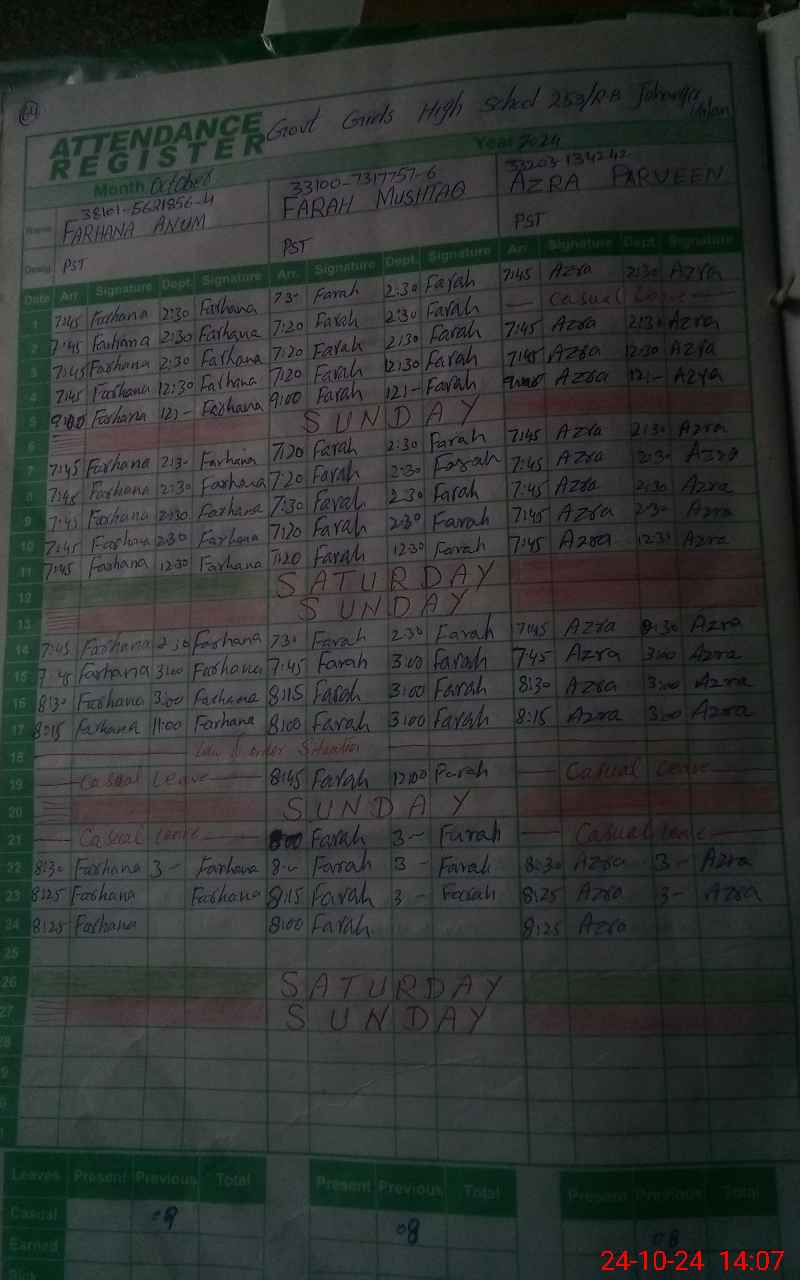 ATTENDANCE REGISTER Govt Girls High School 253/R-B
Month October Year 2024
38101-5621856-4 33100-7317757-6
Name FARHANA ANUM FARAH MUSHTAQ AZRA PARVEEN
Desig. PST PST PST
Date Arr. Signature Dept. Signature Arr. Signature Dept. Signature Arr. Signature Dept. Signature
1 7:45 Farhana 2:30 Farhana 7:30 Farah 2:30 Farah 7:45 Azra 2:30 Azra
2 7:45 Farhana 2:30 Farhana 7:20 Farah 2:30 Farah Casual Leave
3 7:45 Farhana 2:30 Farhana 7:20 Farah 2:30 Farah 7:45 Azra 2:30 Azra
4 7:45 Farhana 12:30 Farhana 7:20 Farah 12:30 Farah 7:45 Azra 12:30 Azra
5 9:00 Farhana 12:- Farhana 9:00 Farah 12:- Farah Azra 12:- Azra
6 SUNDAY
7 7:45 Farhana 2:30 Farhana 7:20 Farah 2:30 Farah 7:45 Azra 2:30 Azra
8 7:45 Farhana 2:30 Farhana 7:20 Farah 2:30 Farah 7:45 Azra 2:30 Azra
9 7:45 Farhana 2:30 Farhana 7:30 Farah 2:30 Farah 7:45 Azra 2:30 Azra
10 7:45 Farhana 2:30 Farhana 7:20 Farah 2:30 Farah 7:45 Azra 2:30 Azra
11 7:45 Farhana 12:30 Farhana 7:20 Farah 12:30 Farah 7:45 Azra 12:30 Azra
12 SATURDAY
13 SUNDAY
14 7:45 Farhana 2:30 Farhana 7:30 Farah 2:30 Farah 7:45 Azra 2:30 Azra
15 7:45 Farhana 3:00 Farhana 7:45 Farah 3:00 Farah 7:45 Azra 3:00 Azra
16 8:30 Farhana 3:00 Farhana 8:15 Farah 3:00 Farah 8:30 Azra 3:00 Azra
17 8:15 Farhana 11:00 Farhana 8:00 Farah 3:00 Farah 8:15 Azra 3:00 Azra
18 Law & order Situation
19 Casual Leave 8:45 Farah 12:00 Farah Casual Leave
20 SUNDAY
21 Casual Leave 8:00 Farah 3- Farah Casual Leave
22 8:30 Farhana 3- Farhana 8:- Farah 3- Farah 8:30 Azra 3- Azra
23 8:25 Farhana Farhana 8:15 Farah 3- Farah 8:25 Azra 3- Azra
24 8:25 Farhana 8:00 Farah 8:25 Azra
25
26 SATURDAY
27 SUNDAY
Leaves Present Previous Total Present Previous Total Present Previous Total
Casual 09 08 08
Earned
24-10-24 14:07